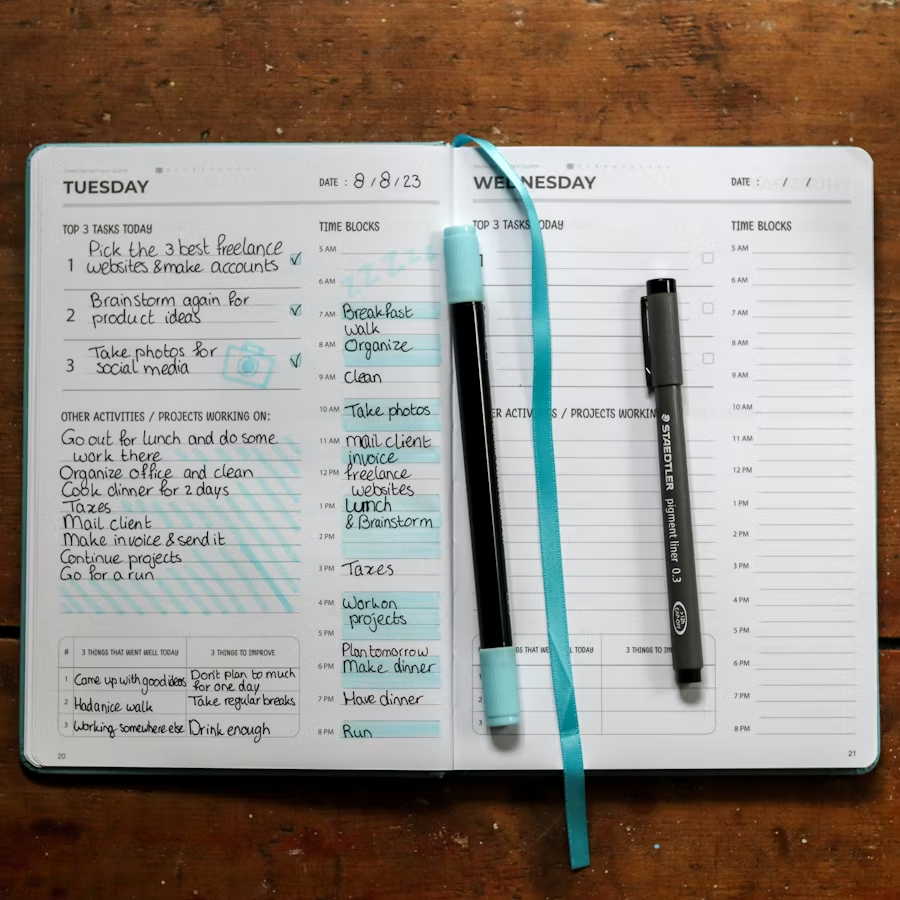 TUESDAY
DATE : 8/8/23
TOP 3 TASKS TODAY
1 Pick the 3 best freelance
websites & make accounts
2 Brainstorm again for
product ideas
3 Take photos for
social media
OTHER ACTIVITIES / PROJECTS WORKING ON:
Go out for lunch and do some
work there
Organize office and clean
Cook dinner for 2 days
Taxes
Mail client
Make invoice & send it
Continue projects
Go for a run
# 3 THINGS THAT WENT WELL TODAY 3 THINGS TO IMPROVE
1 Came up with good ideas Don't plan to much
for one day
2 Had a nice walk Take regular breaks
3 Working somewhere else Drink enough
20
TIME BLOCKS
5 AM ZZZZZ
6 AM
7 AM Breakfast
walk
8 AM Organize
9 AM Clean
10 AM Take photos
11 AM mail client
invoice
12 PM freelance
websites
1 PM Lunch
& Brainstorm
2 PM
3 PM Taxes
4 PM Work on
projects
5 PM
Plan tomorrow
6 PM Make dinner
7 PM Have dinner
8 PM Run
WEDNESDAY
DATE : / /
TOP 3 TASKS TODAY
1
ER ACTIVITIES / PROJECTS WORKIN
GS THAT WENT WELL TODAY 3 THINGS TO IM
1
2
3
TIME BLOCKS
5 AM
6 AM
7 AM
8 AM
9 AM
10 AM
11 AM
12 PM
1 PM
2 PM
3 PM
4 PM
5 PM
6 PM
7 PM
8 PM
21
STAEDTLER pigment liner 0.3